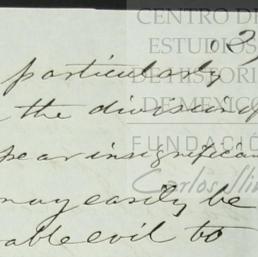 CENTRO DE
ESTUDIOS
DE HISTORIA
DE MEXICO
FUNDACIÓ
Carlos Slim
particularly
the division of
pear insignifican
may easily be
able evil to